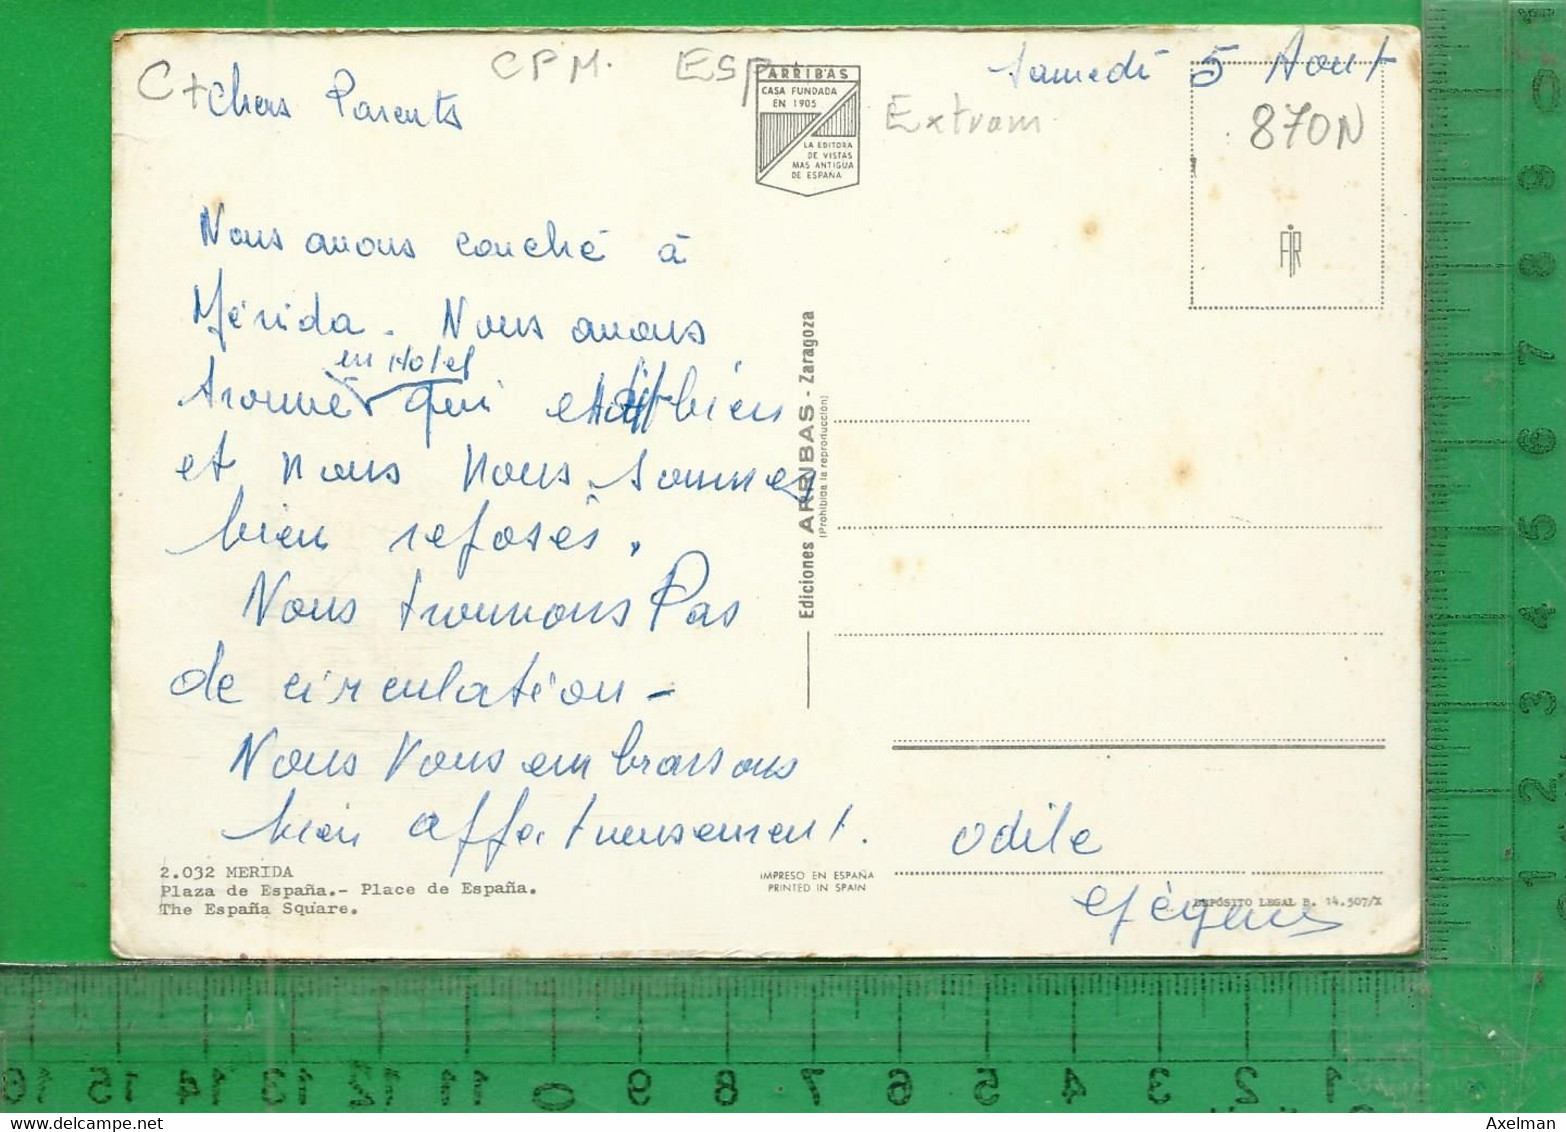 C+
CPM.
ESP
Extram
870N
Samedi 5 Aout
Chers Parents
ARRIBAS
CASA FUNDADA
EN 1905
LA EDITORA
DE VISTAS
MAS ANTIGUA
DE ESPAÑA
FIR
Nous avons couché à
Mérida. Nous avons
en Hotel
trouvé qui etait bien
et nous nous sommes
bien reposés.
Nous trouvons Pas
de circulation -
Nous Vous embrassons
bien affectueusement.
odile
Ediciones ARRIBAS - Zaragoza
(Prohibida la reproducción)
2.032 MERIDA
Plaza de España.- Place de España.
The España Square.
IMPRESO EN ESPAÑA
PRINTED IN SPAIN
DEPÓSITO LEGAL B. 14.507/X
16 15 14 13 12 11 0 9 8 7 6 5 4 3 2 1
0
9
8
7
6
5
4
3
2
1
Axelman